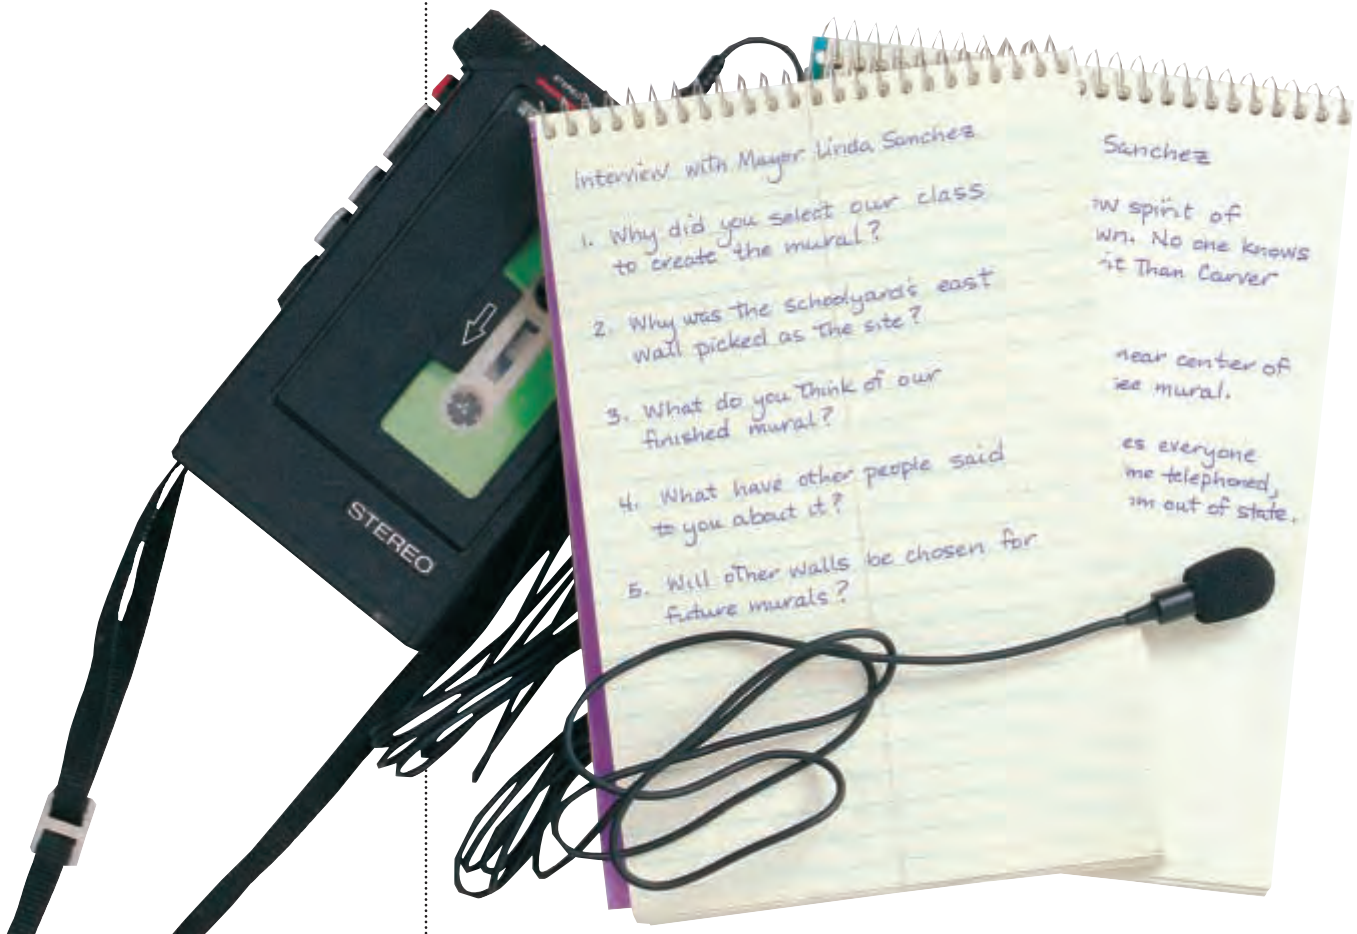 Interview with Mayor Linda Sanchez
1. Why did you select our class
to create the mural?
2. Why was the schoolyard's east
wall picked as the site?
3. What do you think of our
finished mural?
4. What have other people said
to you about it?
5. Will other walls be chosen for
future murals?
Sanchez
spirit of
No one knows
Than Carver
near center of
mural.
everyone
telephoned,
out of state.
STEREO